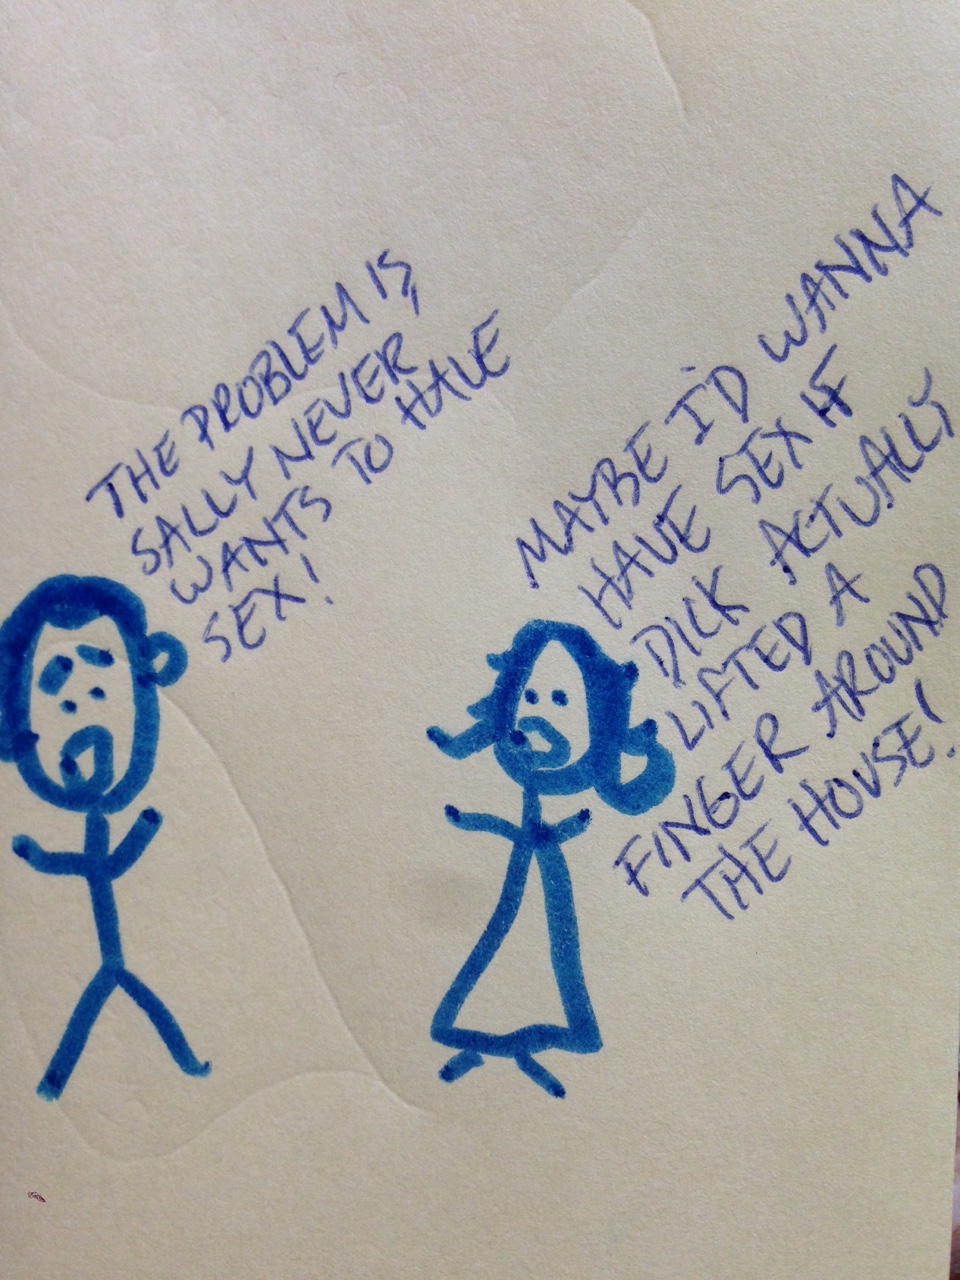 THE PROBLEM IS,
SALLY NEVER
WANTS TO HAVE
SEX!
MAYBE I'D WANNA
HAVE SEX IF
DICK ACTUALLY
LIFTED A
FINGER AROUND
THE HOUSE!